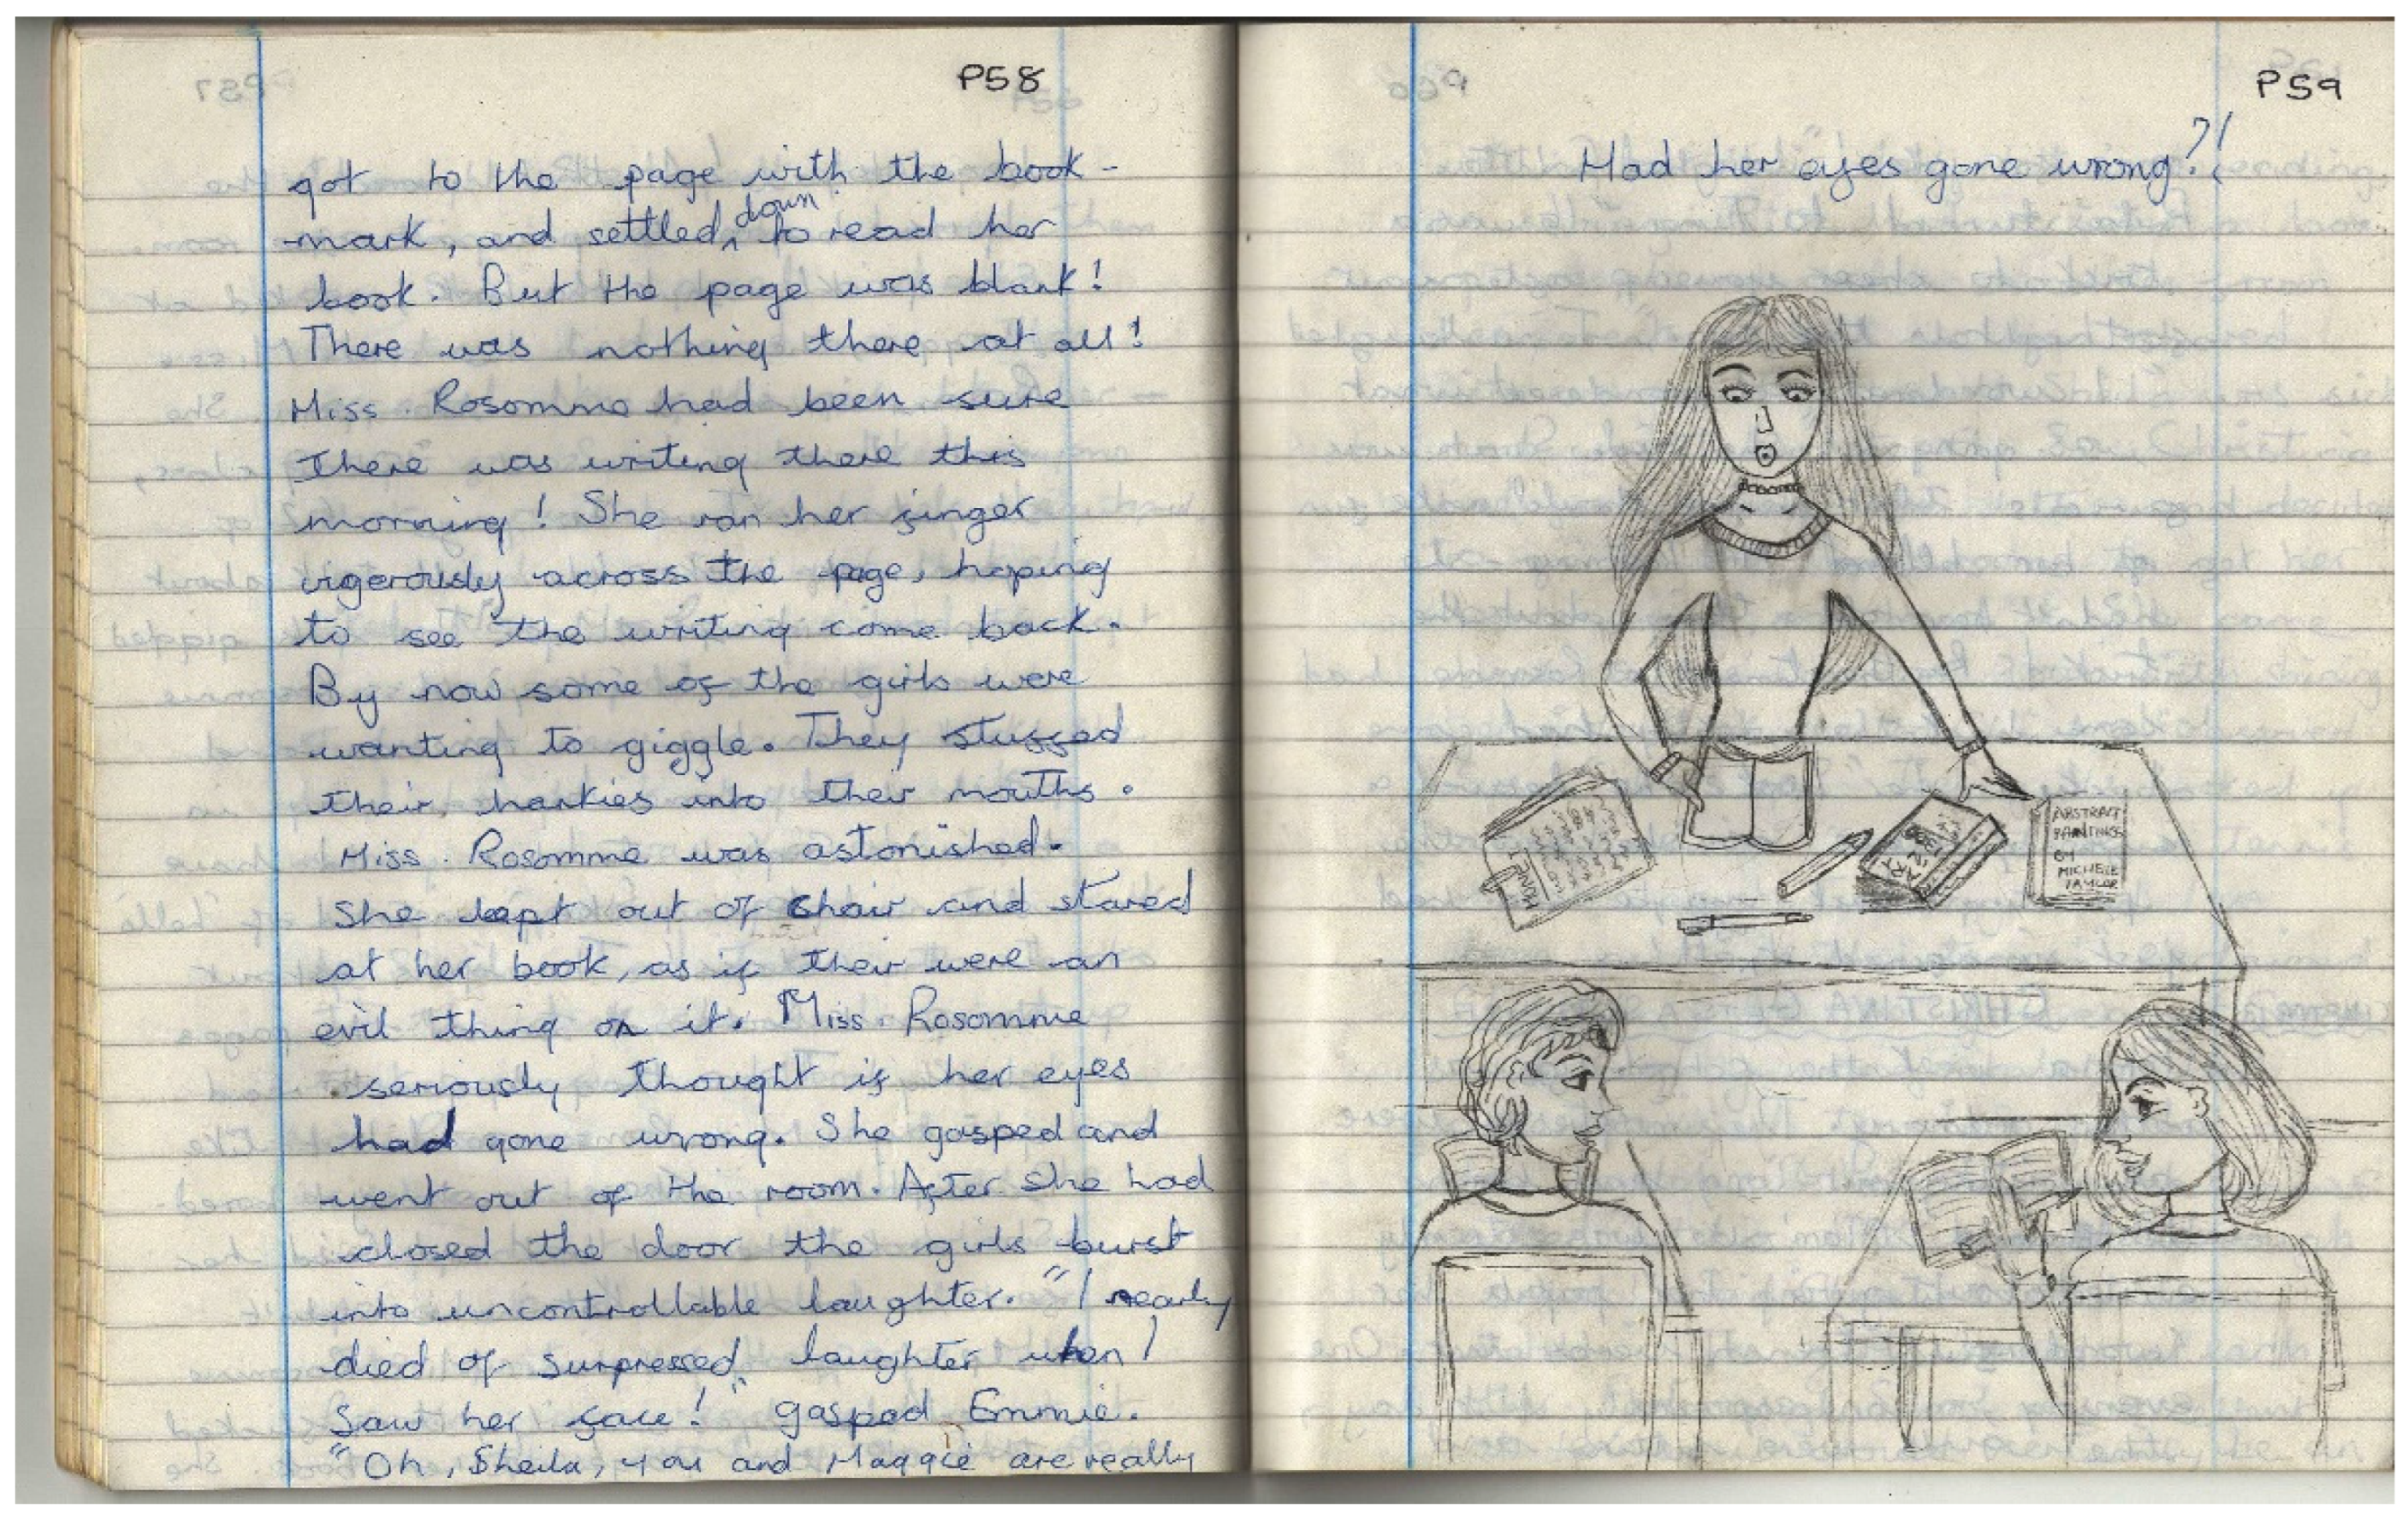 P58
got to the page with the book-
mark, and settled down to read her
book. But the page was blank!
There was nothing there at all!
Miss. Rosomme had been sure
there was writing there this
morning! She ran her finger
vigerously across the page, hoping
to see the writing come back.
By now some of the girls were
wanting to giggle. They stuffed
their hankies into their mouths.
Miss. Rosomme was astonished.
She lept out of chair and stared
at her book, as if their were an
evil thing on it. Miss. Rosomme
seriously thought if her eyes
had gone wrong. She gasped and
went out of the room. After she had
closed the door the girls burst
into uncontrollable laughter. "I nearly
died of surpressed laughter when I
saw her face!" gasped Emmie.
"Oh, Sheila, you and Maggie are really
P59
Had her eyes gone wrong?!
ABSTRACT
PAINTINGS
BY
MICHELE
TAYLOR
ART